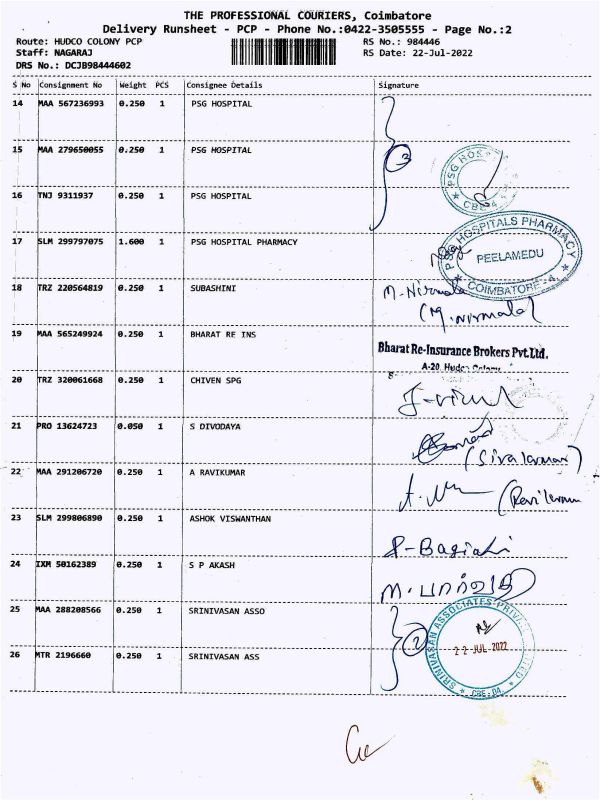 THE PROFESSIONAL COURIERS, Coimbatore
Delivery Runsheet - PCP - Phone No.:0422-3505555 - Page No.:2
Route: HUDCO COLONY PCP RS No.: 984446
Staff: NAGARAJ RS Date: 22-Jul-2022
DRS No.: DCJB98444602
S No Consignment No Weight PCS Consignee Details Signature
14 MAA 567236993 0.250 1 PSG HOSPITAL
15 MAA 279650055 0.250 1 PSG HOSPITAL
3
PSG HOSP
CBE-4
16 TNJ 9311937 0.250 1 PSG HOSPITAL
17 SLM 299797075 1.600 1 PSG HOSPITAL PHARMACY
PSG HOSPITALS PHARMACY
PEELAMEDU
COIMBATORE - 4.
18 TRZ 220564819 0.250 1 SUBASHINI
M. Nirmala
(M. Nirmala)
19 MAA 565249924 0.250 1 BHARAT RE INS
Bharat Re-Insurance Brokers Pvt.Ltd.
A-20, Hudco Colony
20 TRZ 320061668 0.250 1 CHIVEN SPG
21 PRO 13624723 0.050 1 S DIVODAYA
22 MAA 291206720 0.250 1 A RAVIKUMAR
23 SLM 299806890 0.250 1 ASHOK VISWANTHAN
24 IXM 50162389 0.250 1 S P AKASH
M. பார்வதி
25 MAA 288208566 0.250 1 SRINIVASAN ASSO
2
SRINIVASAN ASSOCIATES PRIVATE LIMITED
22 JUL 2022
CBE-04.
26 MTR 2196660 0.250 1 SRINIVASAN ASS